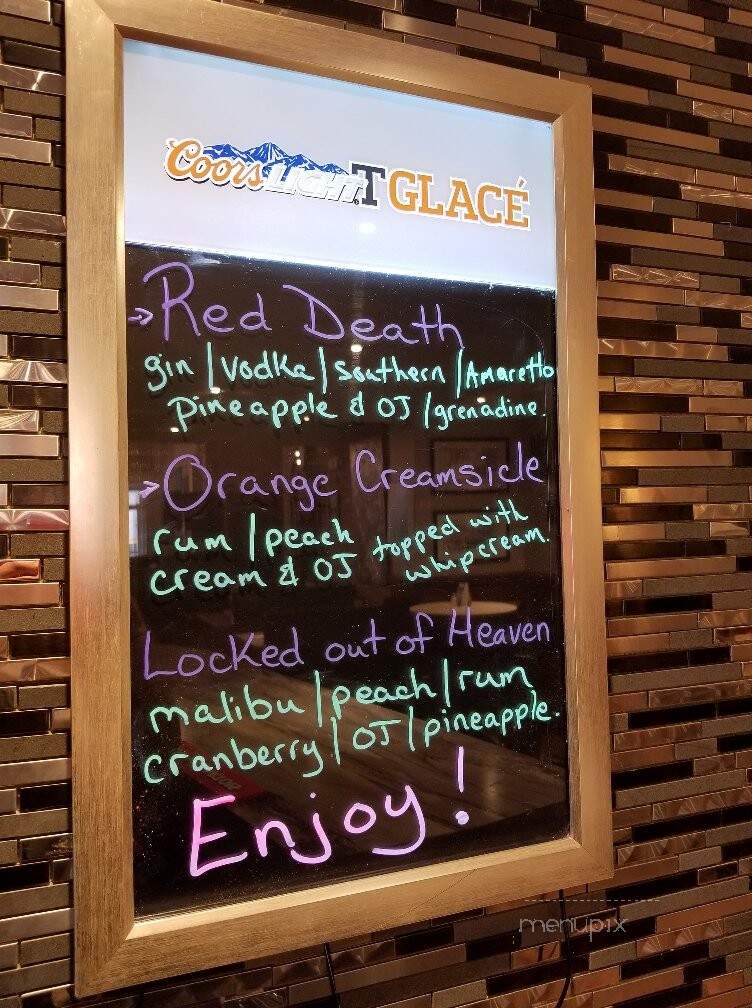 Coors LIGHT T GLACÉ
→Red Death
gin / Vodka / southern / Amaretto
pineapple & OJ / grenadine.
→Orange Creamsicle
rum / peach topped with
cream & OJ whip cream.
Locked out of Heaven
malibu / peach / rum
cranberry / OJ / pineapple.
Enjoy!
menupix